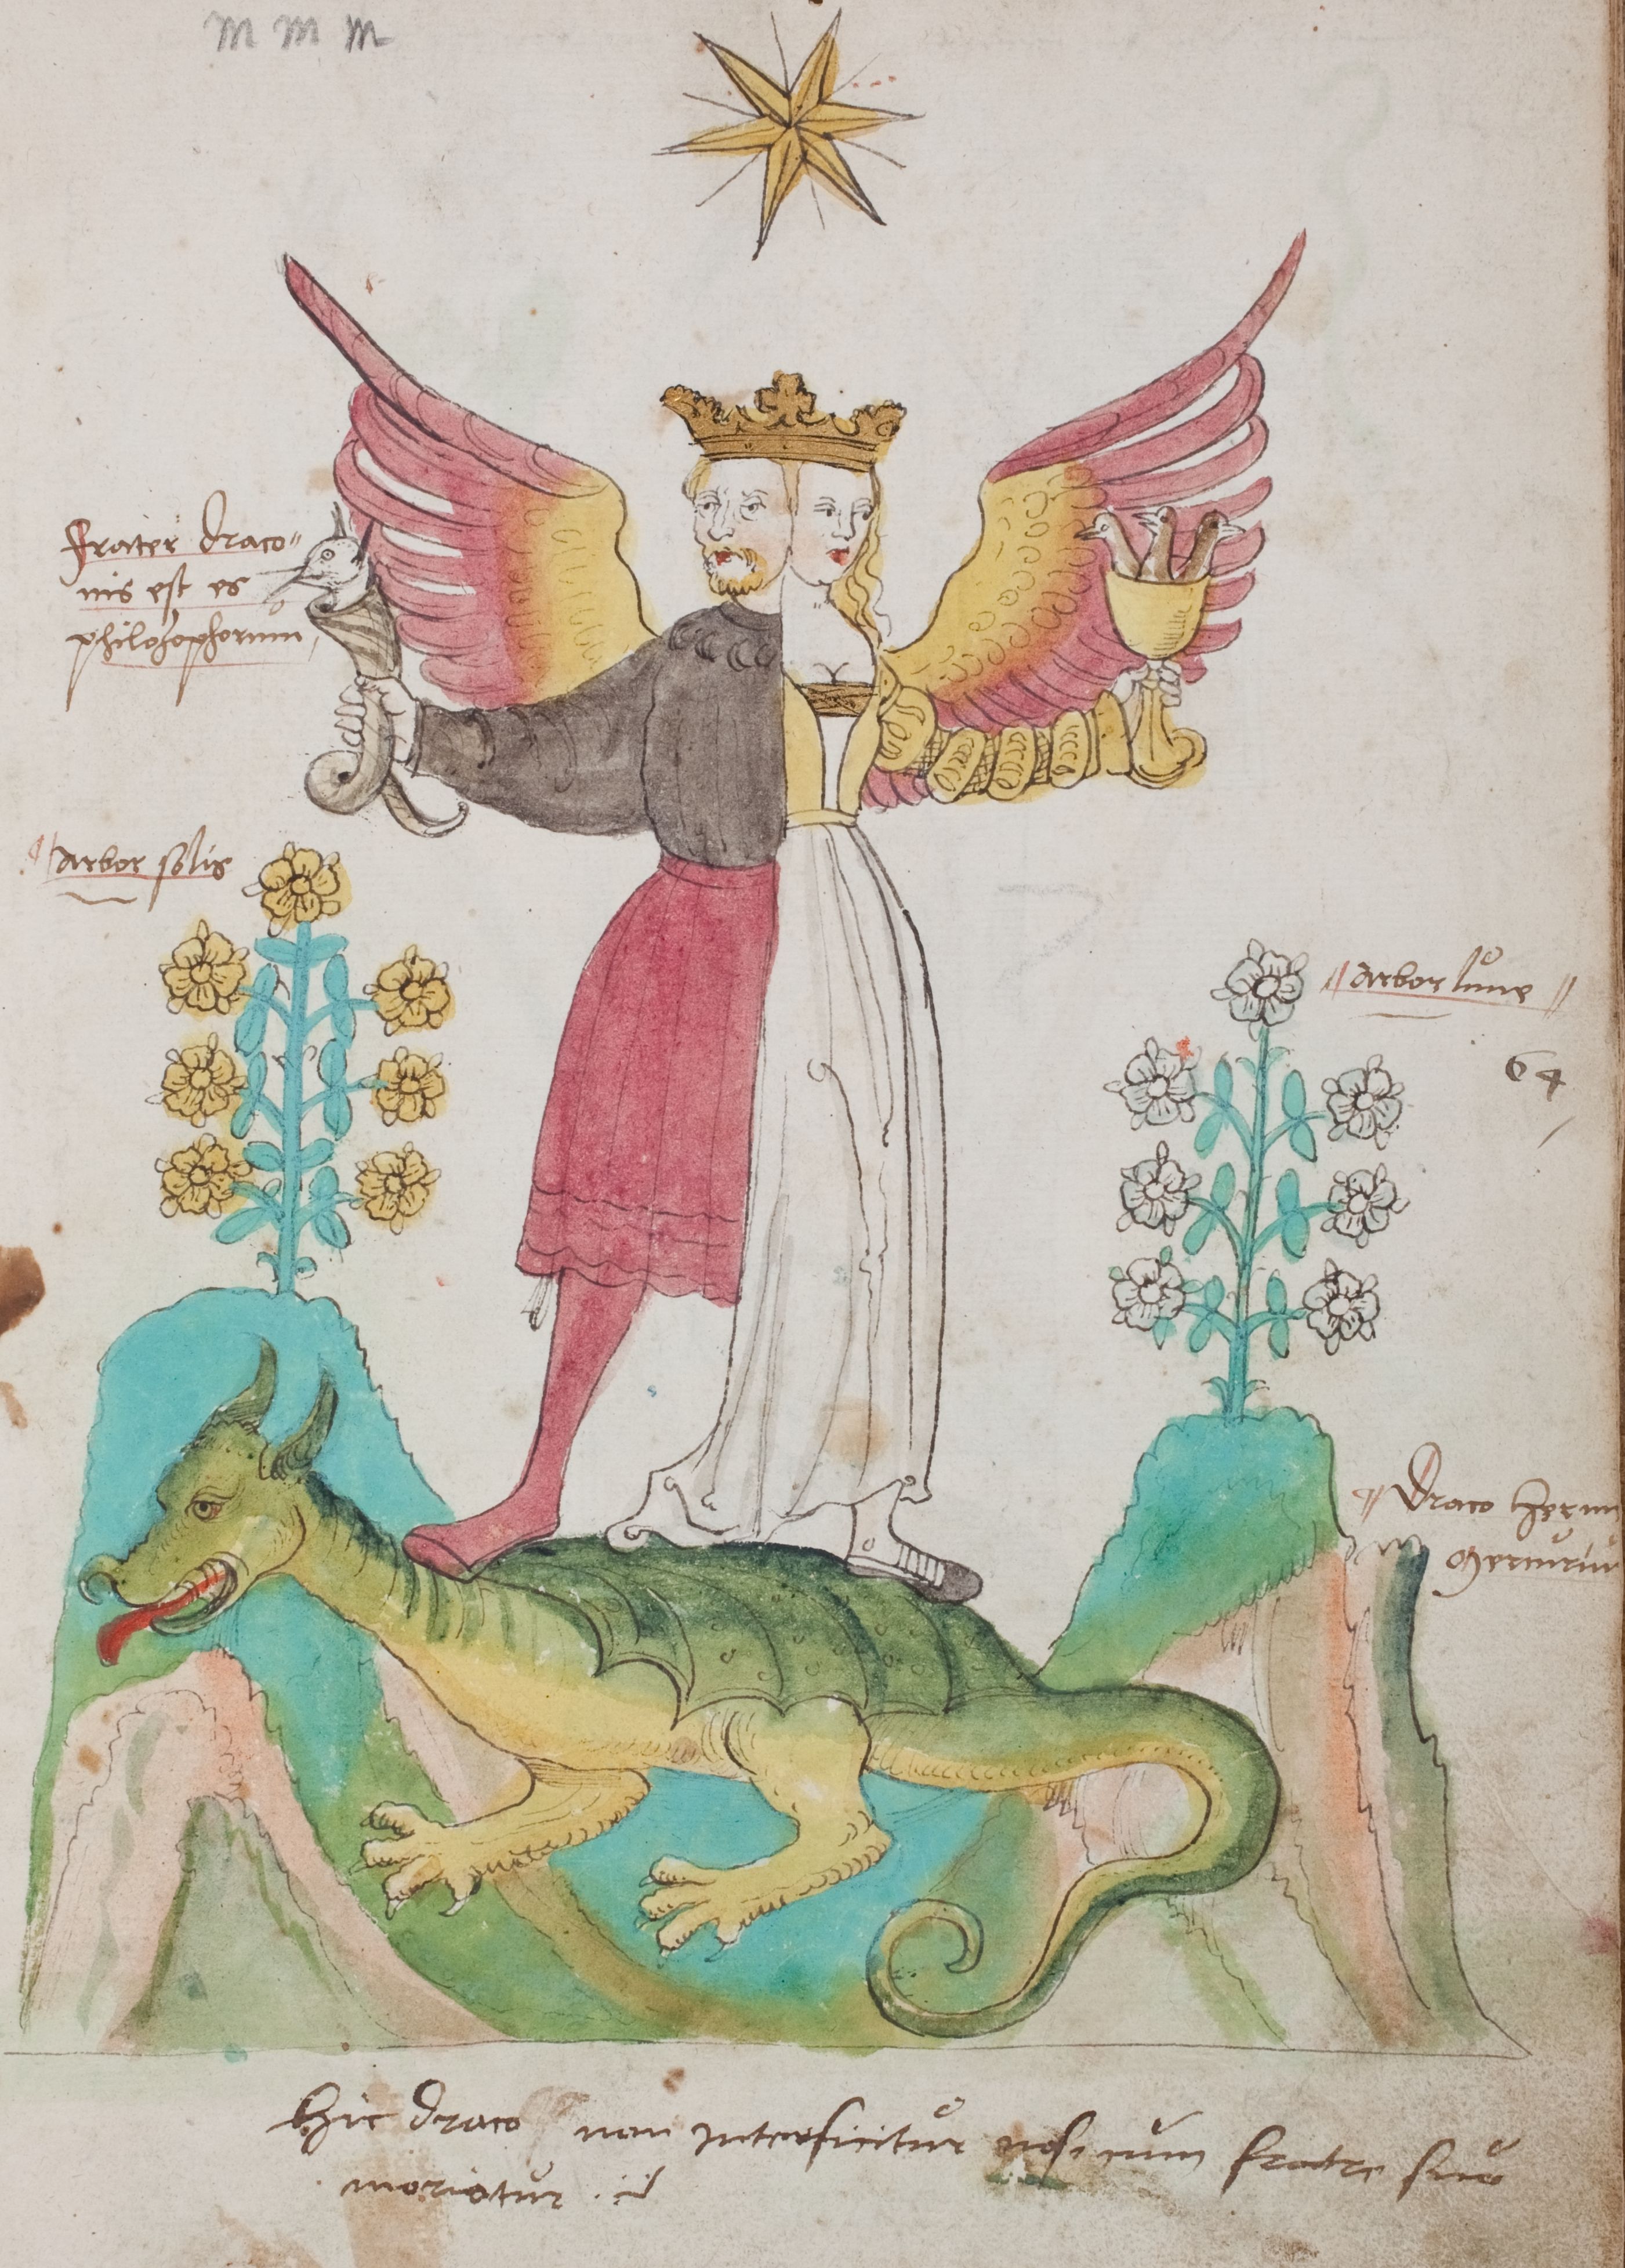 m m m
frater draco=
nis est es
philosophorum
arbor solis
arbor lune
64
Draco
Hic draco non interficitur nisi cum fratre suo
moriatur